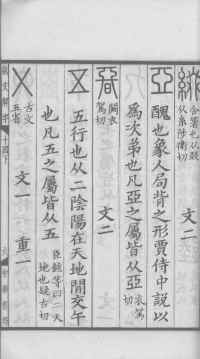 綴 合箸也从叕
从糸陟衛切 文二
亞 醜也象人局背之形賈侍中說以
為次弟也凡亞之屬皆从亞 衣駕
切
闕衣
駕切 文二
五行也从二陰陽在天地閒交午
也凡五之屬皆从五 臣鉉等曰二天
地也疑古切
古文
五省 文一 重一
說文解字 十四下